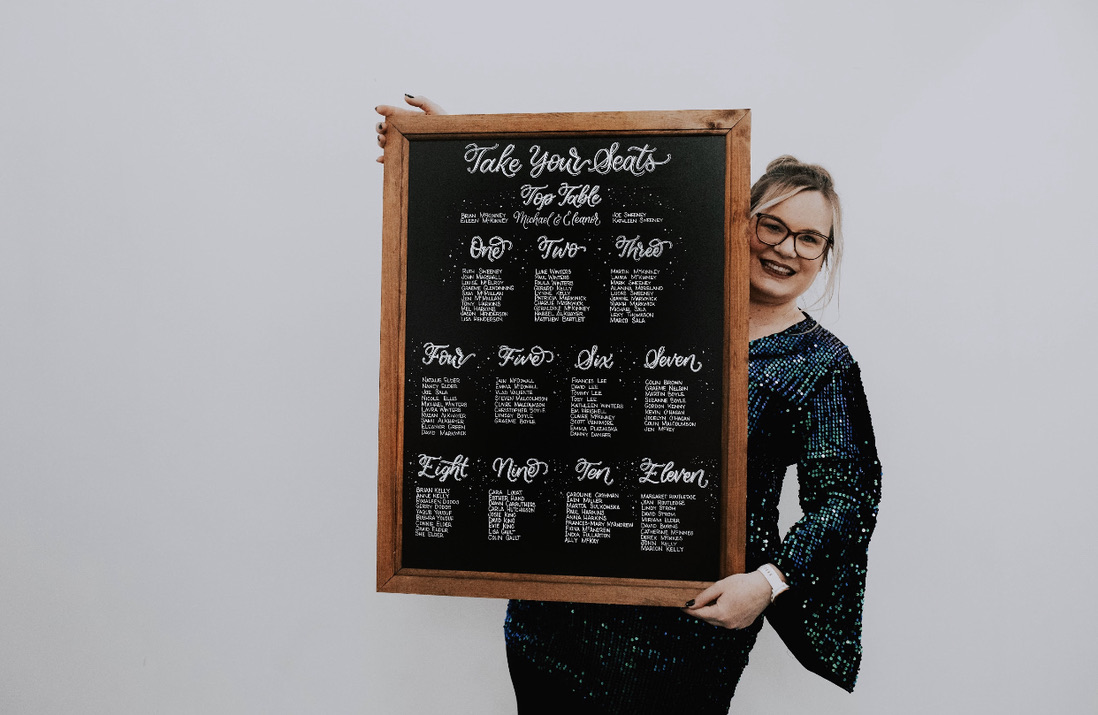 Take Your Seats
Top Table
BRIAN McKINNEY
EILEEN McKINNEY
Michael & Eleanor
JOE SWEENEY
KATHLEEN SWEENEY
One
RUTH SWEENEY
JOHN MARSHALL
LOUISE McELROY
GRAEME GLENDINNING
SAM McMILLAN
JEN McMILLAN
TONY HARKINS
MEL HARKINS
JASON HENDERSON
LISA HENDERSON
Two
LUKE WINTERS
PAUL WINTERS
PAULA WINTERS
GERARD KELLY
LYNNE KELLY
PATRICIA MARKWICK
CHARLIE MARKWICK
GERALDINE McKINNEY
NABEEL ALKHAYER
MATTHEW BARTLETT
Three
MARTIN McKINNEY
LAURA McKINNEY
MARK SWEENEY
ALANNA MORELAND
LUCAS SWEENEY
JOANNE MARKWICK
SARAH MARKWICK
MICHAEL SALA
LEXY THOMSON
MARCO SALA
Four
NATALIE ELDER
NANCY ELDER
JOE SALA
NICOLE ELLIS
MICHAEL WINTERS
LAURA WINTERS
RUZAN ALKHAYER
SAMI ALKHAYER
ELEANOR GREEN
DAVID MARKWICK
Five
IAIN McDOWALL
EMMA McDOWALL
VLAD VALIENTE
STEVEN MALCOLMSON
CLAIRE MALCOLMSON
CHRISTOPHER BOYLE
LINDSAY BOYLE
GRAEME BOYLE
Six
FRANCES LEE
DAVID LEE
TOMMY LEE
TOBY LEE
KATHLEEN WINTERS
EM
CLAIRE McKINNEY
SCOTT
EMMA
DANNY DANGER
Seven
COLIN BROWN
GRAEME NELSON
MARTIN BOYLE
SUZANNE BOYLE
GORDON KENNY
KEVIN O'HAGAN
JOCELYN O'HAGAN
COLIN MALCOLMSON
JEN McKAY
Eight
BRIAN KELLY
ANNE KELLY
DODDS
GERRY DODDS
YAQUB YOUSUF
BUSHRA YOUSUF
CHRIS ELDER
DAVID ELDER
SHE ELDER
Nine
CARA LOGAT
ESTHER HAND
DAWN CARRUTHERS
CARLA HUTCHESON
JOSIE KING
DAVID KING
EVIE KING
LISA GAULT
COLIN GAULT
Ten
CAROLINE
IAIN MILLER
MARTA SULKOWSKA
PAUL HARKINS
ANNA HARKINS
FRANCES-MARY McANDREW
FIONA McANDREW
INDIA FULLARTON
ALLY McKAY
Eleven
MARGARET ROUTLEDGE
JEAN ROUTLEDGE
LINDY STROM
DAVID STROM
MIRIAM ELDER
DAVID BURNS
CATHERINE McINNES
DEREK McINNES
JOHN KELLY
MARION KELLY